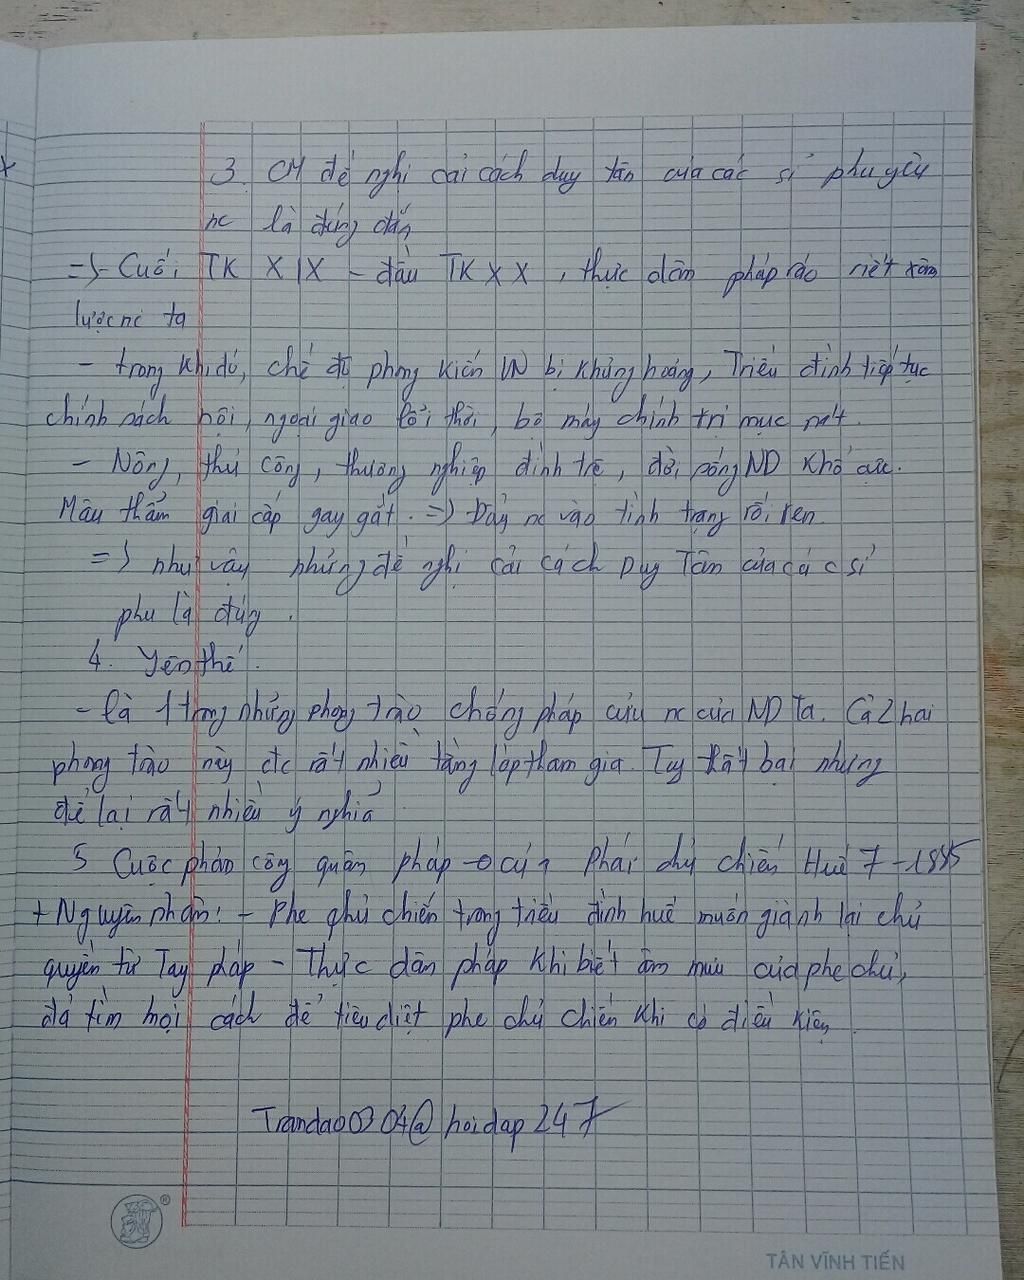 3. CM đề nghị cải cách duy tân của các sĩ phu yêu
nc là đúng đắn
=> - Cuối TK XIX - đầu TK XX, thực dân pháp ráo riết xâm
lược nc ta
- trong khi đó, chế độ phong kiến VN bị khủng hoảng, Triều đình tiếp tục
chính sách nội, ngoại giao lỗi thời, bộ máy chính trị mục nát.
- Nông, thủ công, thương nghiệp đình trệ, đời sống ND khổ cực.
Mâu thẩn giai cấp gay gắt. => Đẩy nc vào tình trạng rối ren.
=> như vậy những đề nghị cải cách Duy Tân của các sĩ
phu là đúng.
4. Yên thế.
- là 1 trong những phong trào chống pháp cứu nc của ND ta. Cả 2 hai
phong trào này đc rất nhiều tầng lớp tham gia. Tuy thất bại nhưng
để lại rất nhiều ý nghĩa
5 Cuộc phản công quân pháp của Phái chủ chiến Huế 7-1885
+ Nguyên nhân: - Phe chủ chiến trong triều đình huế muốn giành lại chủ
quyền từ Tay pháp - Thực dân pháp khi biết âm mưu của phe chủ,
đả tìm mọi cách để tiêu diệt phe chủ chiến khi có điều kiện.
Trandao0304@hoidap247
®
TÂN VĨNH TIẾN